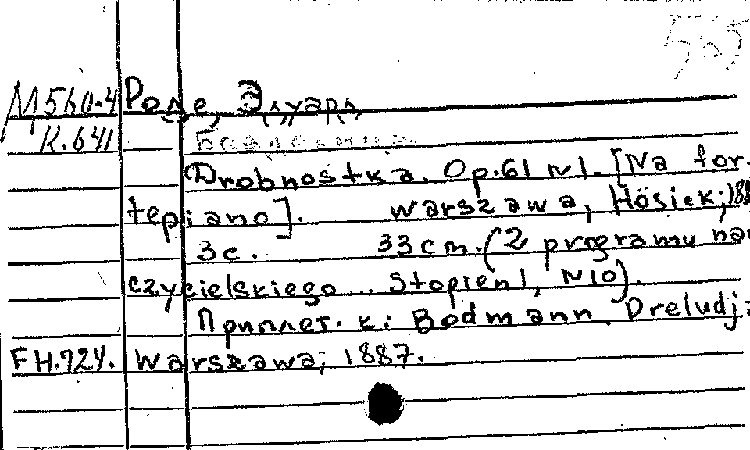 565
М560-4 Роде, Эдуард
К.641 Безделушка
Drobnostka. Op.61 N1. [Na for-
tepiano]. Warszawa, Hösick; 188
3c. 33cm. (2 programu nau
czycielskiego... Stopień 1, N10).
Приплет. к: Bodmann. Preludj:
FH.724. Warszawa; 1887.